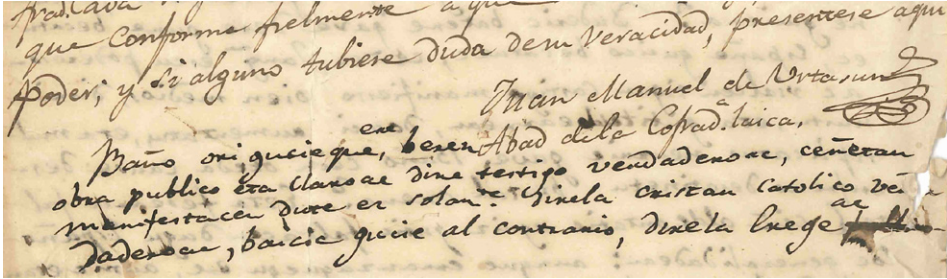 que conforme fielmente a que
Poder; y si alguno tubiese duda de su veracidad, presentese aqui
Juan Manuel de Vrtasun
Abad de la Cofrad.ª laica.
Baño ori gucieque, beren ere
obra publico eta claroac dire testigo verdaderoac, ceñetan
manifestacen dute ez solam.te Girela cristau Catolico ve
daderoac, baicic gucie al contrario, direla Erege ac